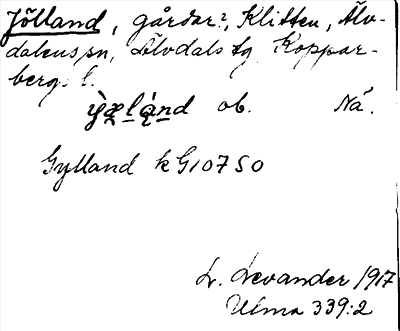 Jölland, gårdar?, Klitten, Älv-
dalens sn, Älvdals tg Koppar-
bergs l.
ob. Nå.
Gylland k G10750
L. Levander 1917
Ulma 339:2